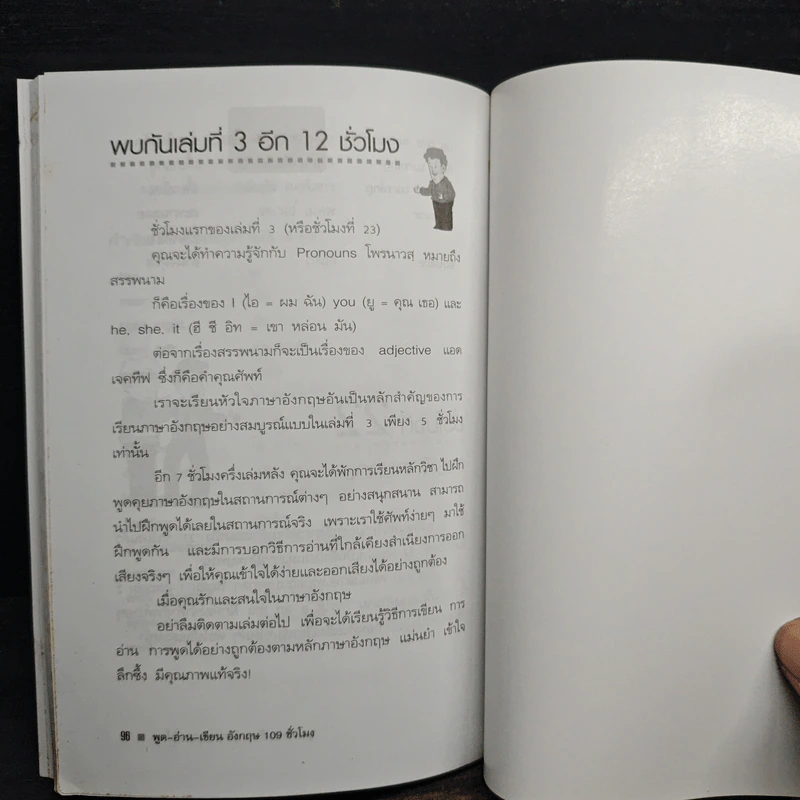 พบกันเล่มที่ 3 อีก 12 ชั่วโมง
ชั่วโมงแรกของเล่มที่ 3 (หรือชั่วโมงที่ 23)
คุณจะได้ทำความรู้จักกับ Pronouns โพรนาวสฺ หมายถึง
สรรพนาม
ก็คือเรื่องของ I (ไอ = ผม ฉัน) you (ยู = คุณ เธอ) และ
he, she, it (ฮี ชี อิท = เขา หล่อน มัน)
ต่อจากเรื่องสรรพนามก็จะเป็นเรื่องของ adjective แอด
เจคทีฟ ซึ่งก็คือคำคุณศัพท์
เราจะเรียนหัวใจภาษาอังกฤษอันเป็นหลักสำคัญของการ
เรียนภาษาอังกฤษอย่างสมบูรณ์แบบในเล่มที่ 3 เพียง 5 ชั่วโมง
เท่านั้น
อีก 7 ชั่วโมงครึ่งเล่มหลัง คุณจะได้พักการเรียนหลักวิชา ไปฝึก
พูดคุยภาษาอังกฤษในสถานการณ์ต่างๆ อย่างสนุกสนาน สามารถ
นำไปฝึกพูดได้เลยในสถานการณ์จริง เพราะเราใช้ศัพท์ง่ายๆ มาใช้
ฝึกพูดกัน และมีการบอกวิธีการอ่านที่ใกล้เคียงสำเนียงการออก
เสียงจริงๆ เพื่อให้คุณเข้าใจได้ง่ายและออกเสียงได้อย่างถูกต้อง
เมื่อคุณรักและสนใจในภาษาอังกฤษ
อย่าลืมติดตามเล่มต่อไป เพื่อจะได้เรียนรู้วิธีการเขียน การ
อ่าน การพูดได้อย่างถูกต้องตามหลักภาษาอังกฤษ แม่นยำ เข้าใจ
ลึกซึ้ง มีคุณภาพแท้จริง!
96 ■ พูด-อ่าน-เขียน อังกฤษ 109 ชั่วโมง